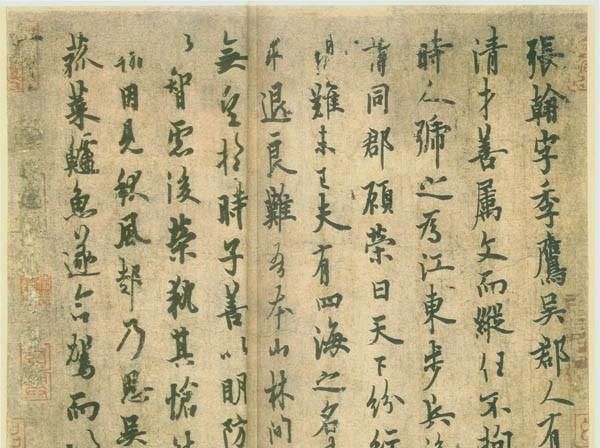 張翰字季鷹吳郡人有
清才善属文而縱任不拘
時人號之為江東步兵後
謂同郡顧榮曰天下紛紜
難未已夫有四海之名
求退良難吾本山林間
無望於時子善以明防
智慮後榮執其愴
翰因見秋風起乃思吳
菰菜鱸魚遂命駕而